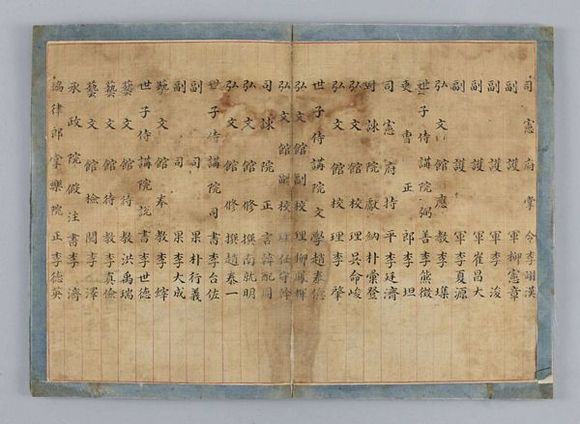 司憲府掌令李翊漢
副護軍柳憲章
副護軍李浚
副護軍崔昌大
副護軍李夏源
弘文館應教李
世子侍講院弼善李熊徵
吏曹正郎李坦
司憲府持平李廷濟
司諫院獻納朴彙登
弘文館校理吳命峻
弘文館校理李肇
世子侍講院文學趙泰億
弘文館副校理柳鳳輝
弘文館副校理任守幹
司諫院正言韓配周
弘文館修撰南就明
弘文館修撰趙泰一
世子侍講院司書李台佐
副司果朴行義
副司果李大成
藝文館奉教李縡
世子侍講院說書李世德
藝文館待教洪禹瑞
藝文館待教李真儉
藝文館檢閱李澤
承政院假注書李濟
協律郎掌樂院正李德英